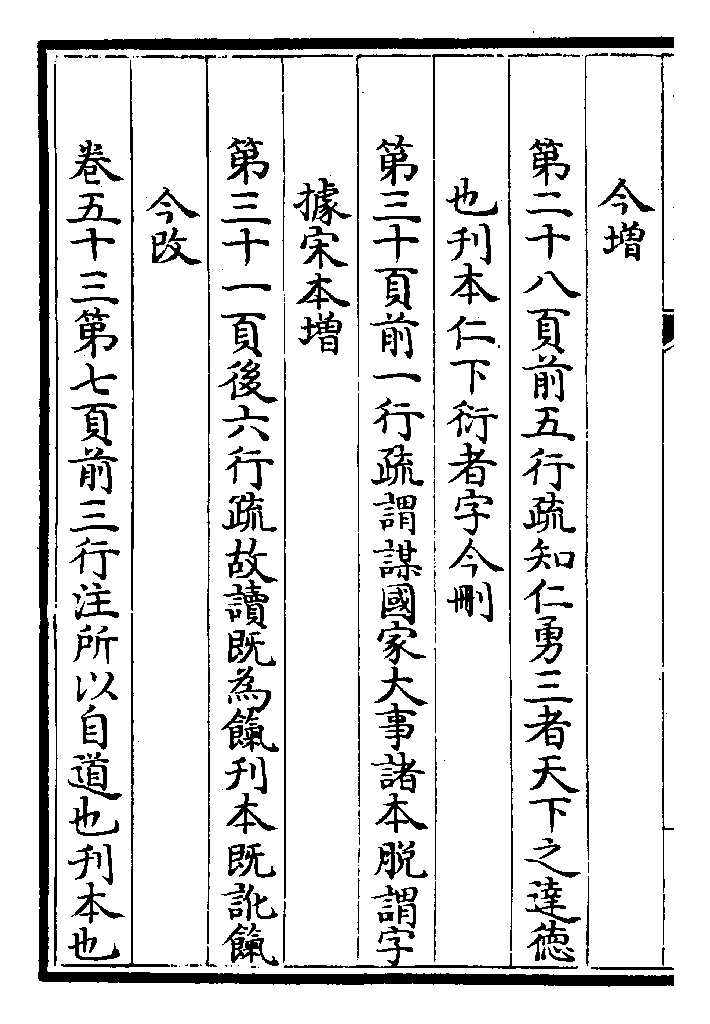 今增
第二十八頁前五行疏知仁勇三者天下之達德
也刋本仁下衍者字今刪
第三十頁前一行疏謂謀國家大事諸本脱謂字
據宋本增
第三十一頁後六行疏故讀既為餼刋本既訛餼
今改
卷五十三第七頁前三行注所以自道也刋本也